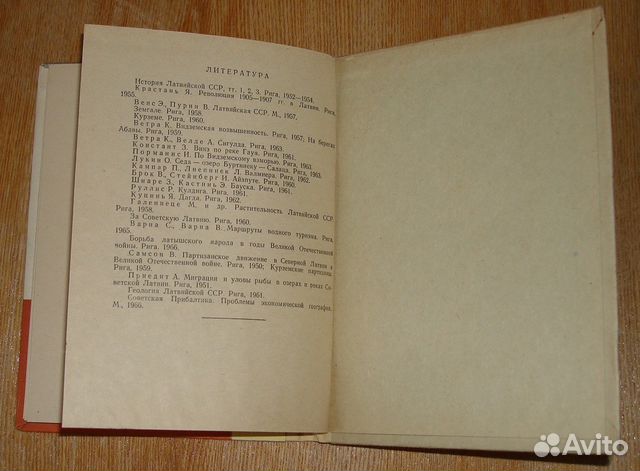 ЛИТЕРАТУРА
История Латвийской ССР, тт. 1, 2, 3. Рига, 1952—1954.
Крастань Я. Революция 1905—1907 гг. в Латвии. Рига,
1955.
Веис Э., Пурин В. Латвийская ССР. М., 1957.
Земгале. Рига, 1958.
Курземе. Рига, 1960.
Ветра К. Видземская возвышенность. Рига, 1957; На берегах
Абавы. Рига, 1959.
Ветра К., Велде А. Сигулда. Рига, 1963.
Констант З. Вниз по реке Гауя. Рига, 1961.
Порманис И. По Видземскому взморью. Рига, 1963.
Лукин О. Седа — озеро Буртниеку — Салаца. Рига, 1963.
Кампар П., Лиепниек Л. Валмиера. Рига, 1962.
Брок В., Стейнберг И. Айзпуте. Рига, 1960.
Шнаре З., Кастинь Э. Бауска. Рига, 1961.
Руллис Р. Кулдига. Рига, 1961.
Купинь Я. Дагда. Рига, 1962.
Галениеце М. и др. Растительность Латвийской ССР.
Рига, 1958.
За Советскую Латвию. Рига, 1960.
Варна С., Варна В. Маршруты водного туризма. Рига,
1965.
Борьба латышского народа в годы Великой Отечественной
войны. Рига. 1966.
Самсон В. Партизанское движение в Северной Латвии в
Великой Отечественной войне. Рига, 1950; Курземские партизаны.
Рига, 1959.
Приедит А. Миграции и уловы рыбы в озерах и реках Со-
ветской Латвии. Рига, 1951.
Геология Латвийской ССР. Рига, 1961.
Советская Прибалтика. Проблемы экономической географии.
М., 1966.
Avito